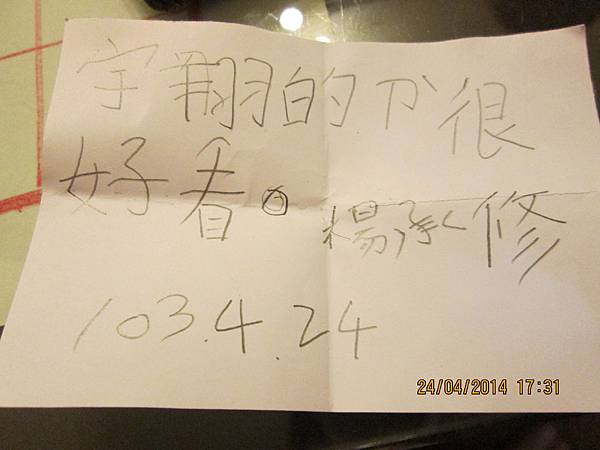 宇翔的刀很
好看。楊承修
103.4.24
24/04/2014 17:31